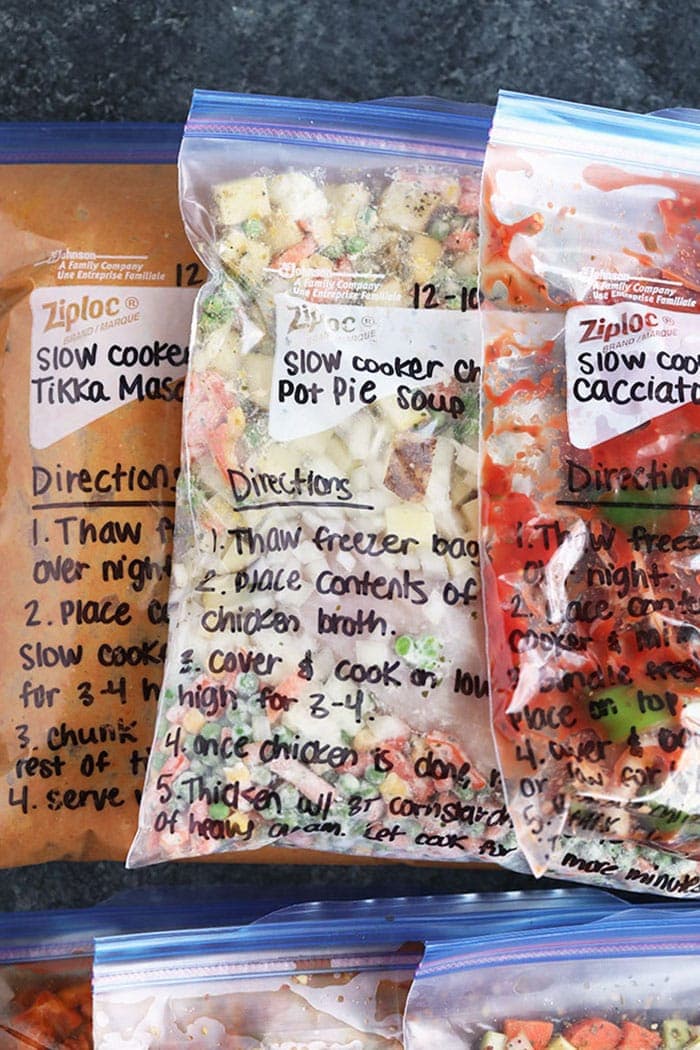 Johnson
A Family Company
Une Entreprise Familiale
12
Ziploc®
BRAND / MARQUE
Slow cooker
Tikka Mas
Directions
1. Thaw f
over night
2. Place co
slow cook
for 3-4 h
3. chunk
rest of t
4. serve
Johnson
A Family Company
Une Entreprise Familiale
12-10
Ziploc®
BRAND / MARQUE
Slow cooker ch
Pot Pie Soup
Directions
1. Thaw freezer bag
2. Place contents of
chicken broth.
3. cover & cook on low
high for 3-4.
4. once chicken is done,
5. Thicken w/ 3T cornstarch
of heavy cream. Let cook for
more minute
Johnson
A Family Company
Une Entreprise Familiale
Ziploc®
BRAND / MARQUE
Slow cook
Cacciato
Direction
1. Thaw freez
over night.
2. Place cont
cooker & mi
3.
place on top.
4. cover & co
or low for
5.